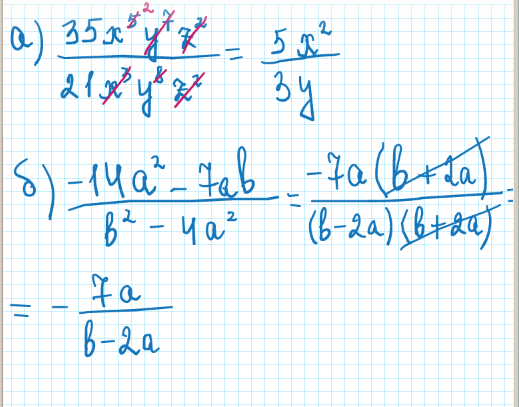 а) 35x⁵ ² y⁷ z² / 21x³ y⁸ z² = 5x² / 3y
б) -14a² - 7ab / b² - 4a² = -7a (b + 2a) / (b - 2a) (b + 2a) =
= - 7a / b - 2a